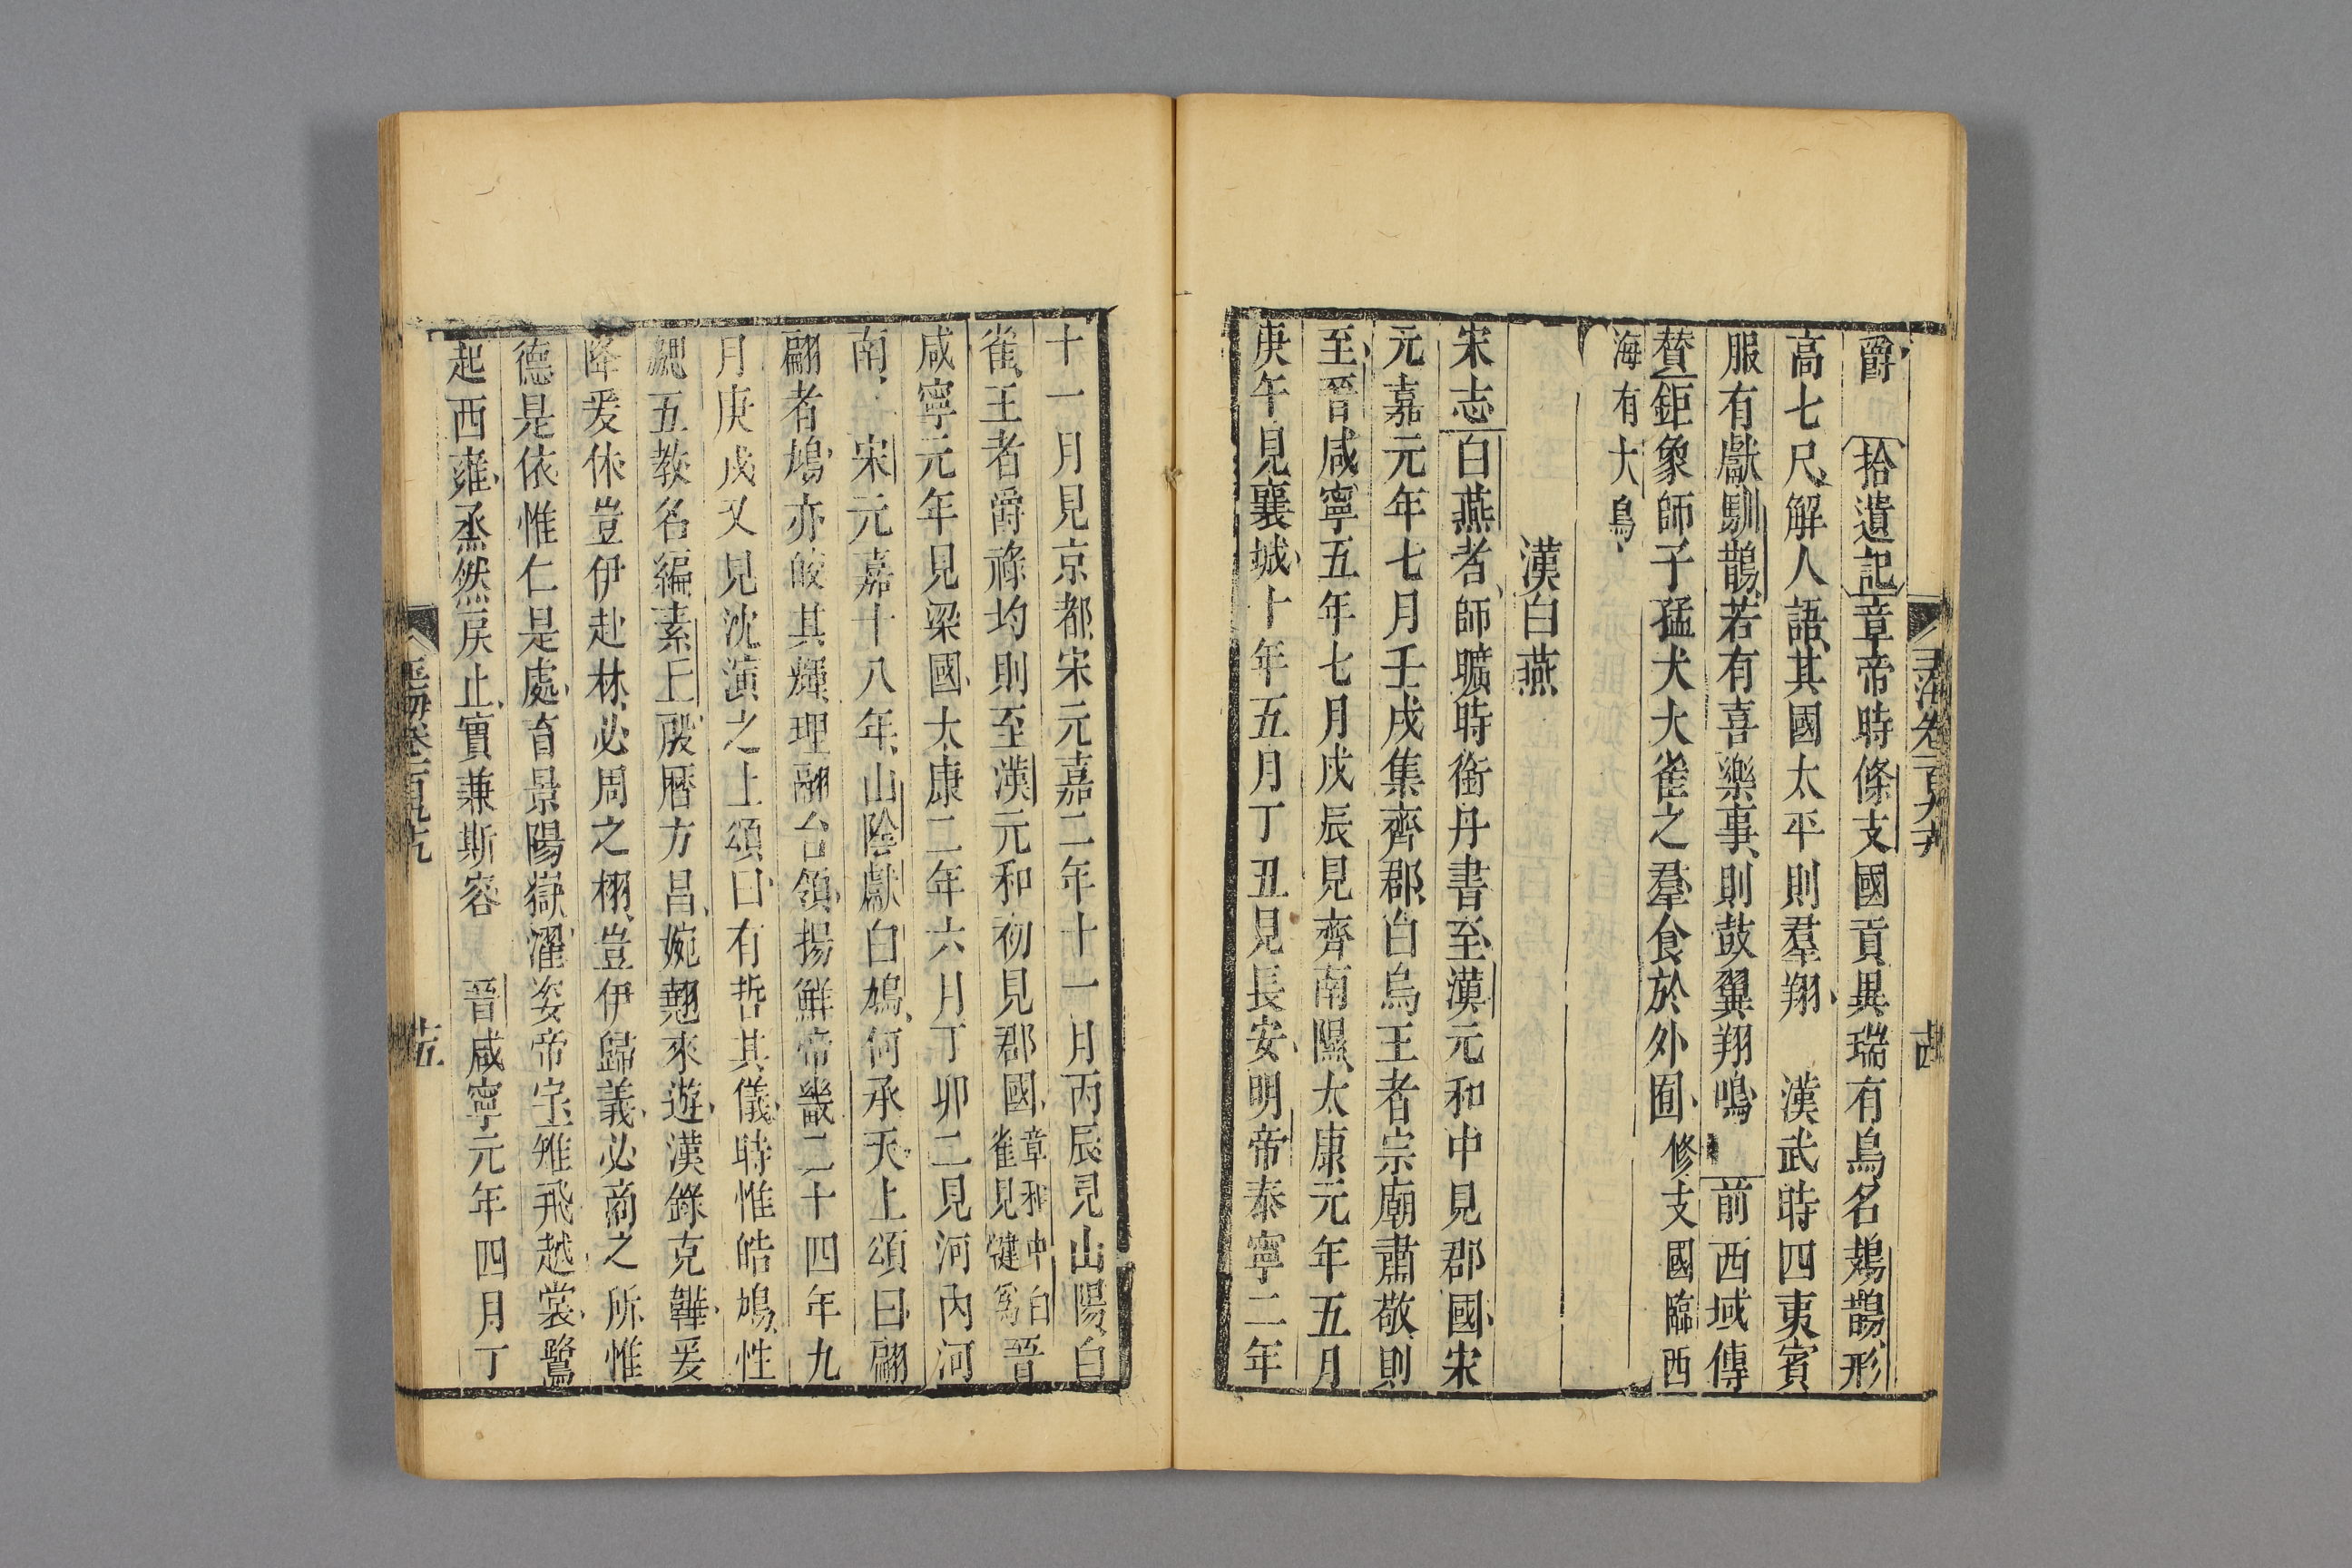 爵　拾遺記章帝時條支國貢異瑞有鳥名鳷鵲形
高七尺解人語其國太平則羣翔　漢武時四夷賓
服有獻馴鵲若有喜樂事則鼓翼翔鳴　前西域傳
賛鉅象師子猛犬大雀之羣食於外囿條支國臨西
海有大鳥
漢白燕
宋志白燕者師曠時銜丹書至漢元和中見郡國宋
元嘉元年七月壬戌集齊郡白烏王者宗廟肅敬則
至晉咸寧五年七月戊辰見齊南隰太康元年五月
庚午見襄城十年五月丁丑見長安明帝泰寧二年
十一月見京都宋元嘉二年十一月丙辰見山陽白
雀王者爵祿均則至漢元和初見郡國章和中白雀見犍爲晉
咸寧元年見梁國太康二年六月丁卯二見河內河
南　宋元嘉十八年山陰獻白鳩何承天上頌曰翩
翩者鳩亦皎其輝理翮台領揚鮮帝畿二十四年九
月庚戌又見沈演之上頌曰有哲其儀時惟皓鳩性
勰五教名編素丘殷曆方昌婉翹來遊漢錄克韡爰
降爰休豈伊赴林必周之栩豈伊歸義必商之所惟
德是依惟仁是處育景陽嶽濯姿帝宇雉飛越裳鷺
起西雍烝然戾止實兼斯容　晉咸寧元年四月丁